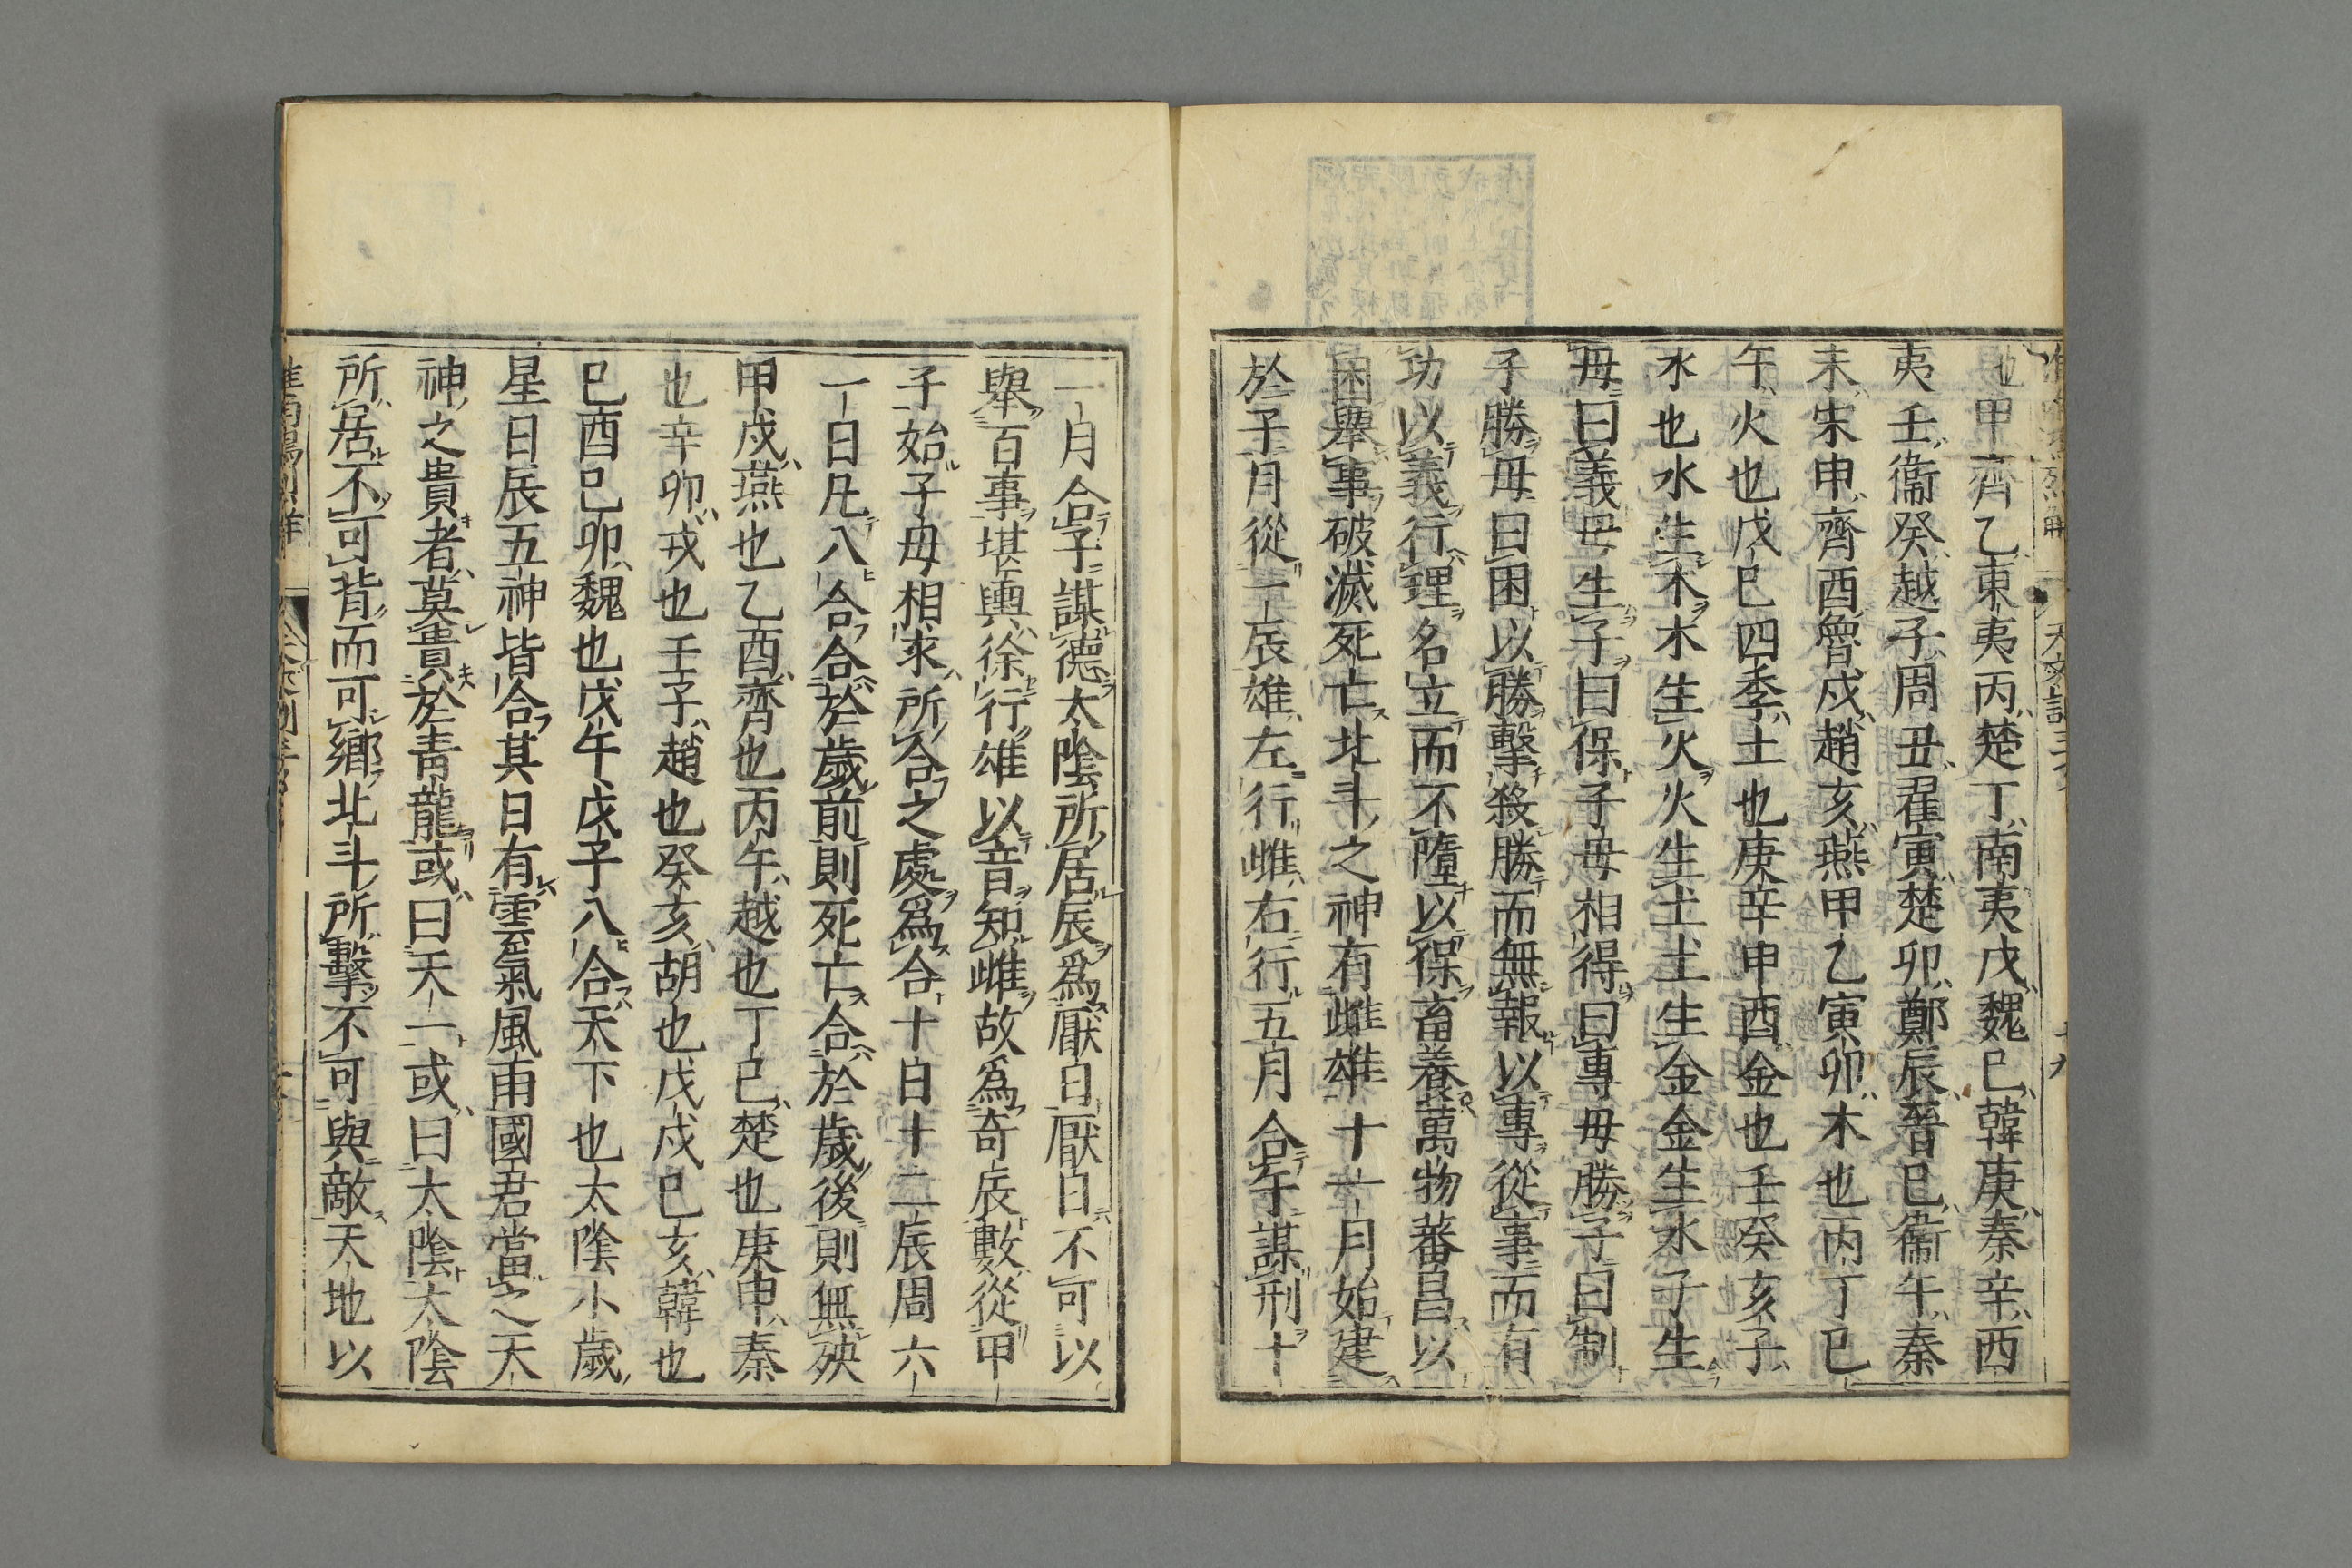 也甲齊乙東夷丙楚丁南夷戊魏己韓庚秦辛西
夷壬衞癸越子周丑翟寅楚卯鄭辰晉巳衞午秦
未宋申齊酉魯戌趙亥燕甲乙寅卯木也丙丁巳
午火也戊己四季土也庚辛申酉金也壬癸亥子
水也水生木木生火火生土土生金金生水子生
母曰義母生子曰保子母相得曰專母勝子曰制
子勝母曰困以勝擊殺勝而無報以專從事而有
功以義行理名立而不墮以保畜養萬物蕃昌以
困舉事破滅死亡北斗之神有雌雄十一月始建
於子月從一辰雄左行雌右行五月合午謀刑十
一月合子謀德太陰所居辰爲厭日厭日不可以
舉百事堪輿徐行雄以音知雌故爲奇辰數從甲
子始子母相求所合之處爲合十日十二辰周六
十日凡八合合於歲前則死亡合於歲後則無殃
甲戌燕也乙酉齊也丙午越也丁巳楚也庚申秦
也辛卯戎也壬子趙也癸亥胡也戊戌己亥韓也
己酉己卯魏也戊午戊子八合天下也太陰小歲
星日辰五神皆合其日有雲氣風雨國君當之天
神之貴者莫貴於青龍或曰天一或曰太陰太陰
所居不可背而可鄉北斗所擊不可與敵天地以